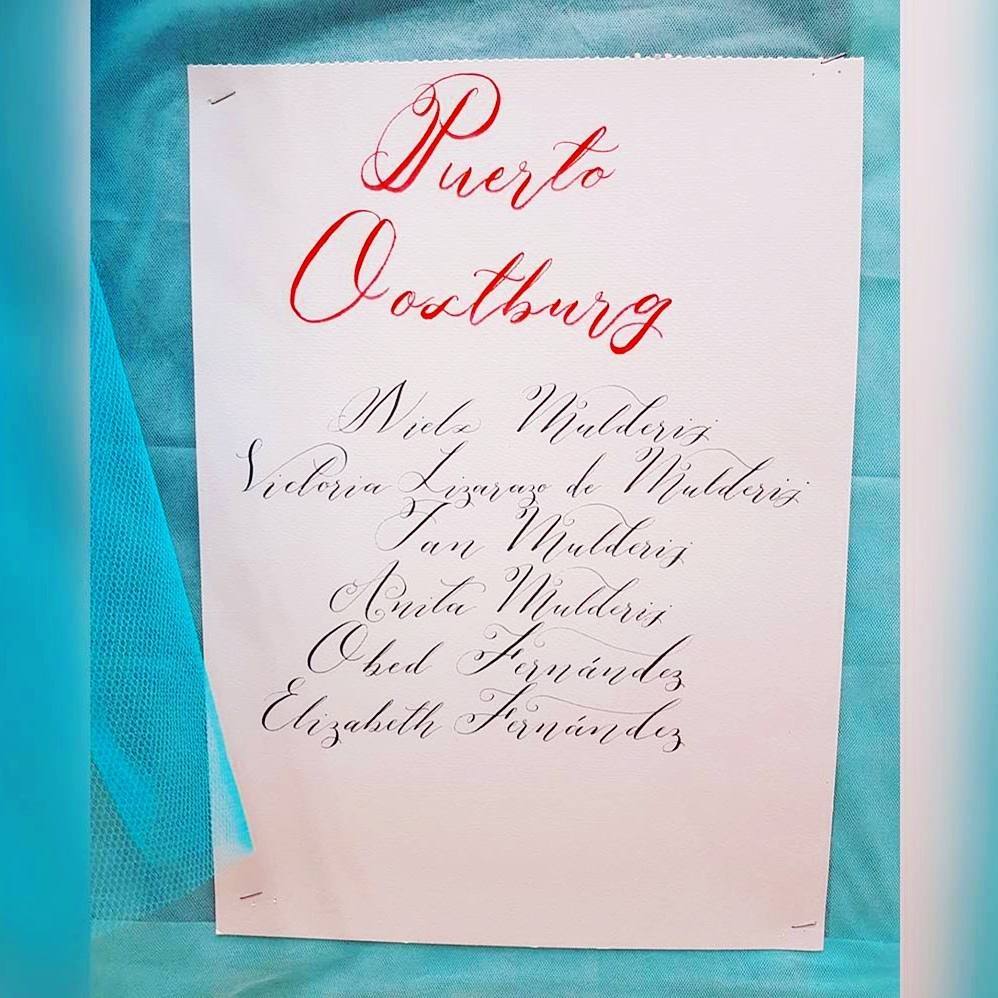 Puerto
Oostburg
Niels Mulderij
Victoria Lizarazo de Mulderij
Jan Mulderij
Anita Mulderij
Obed Fernández
Elizabeth Fernández